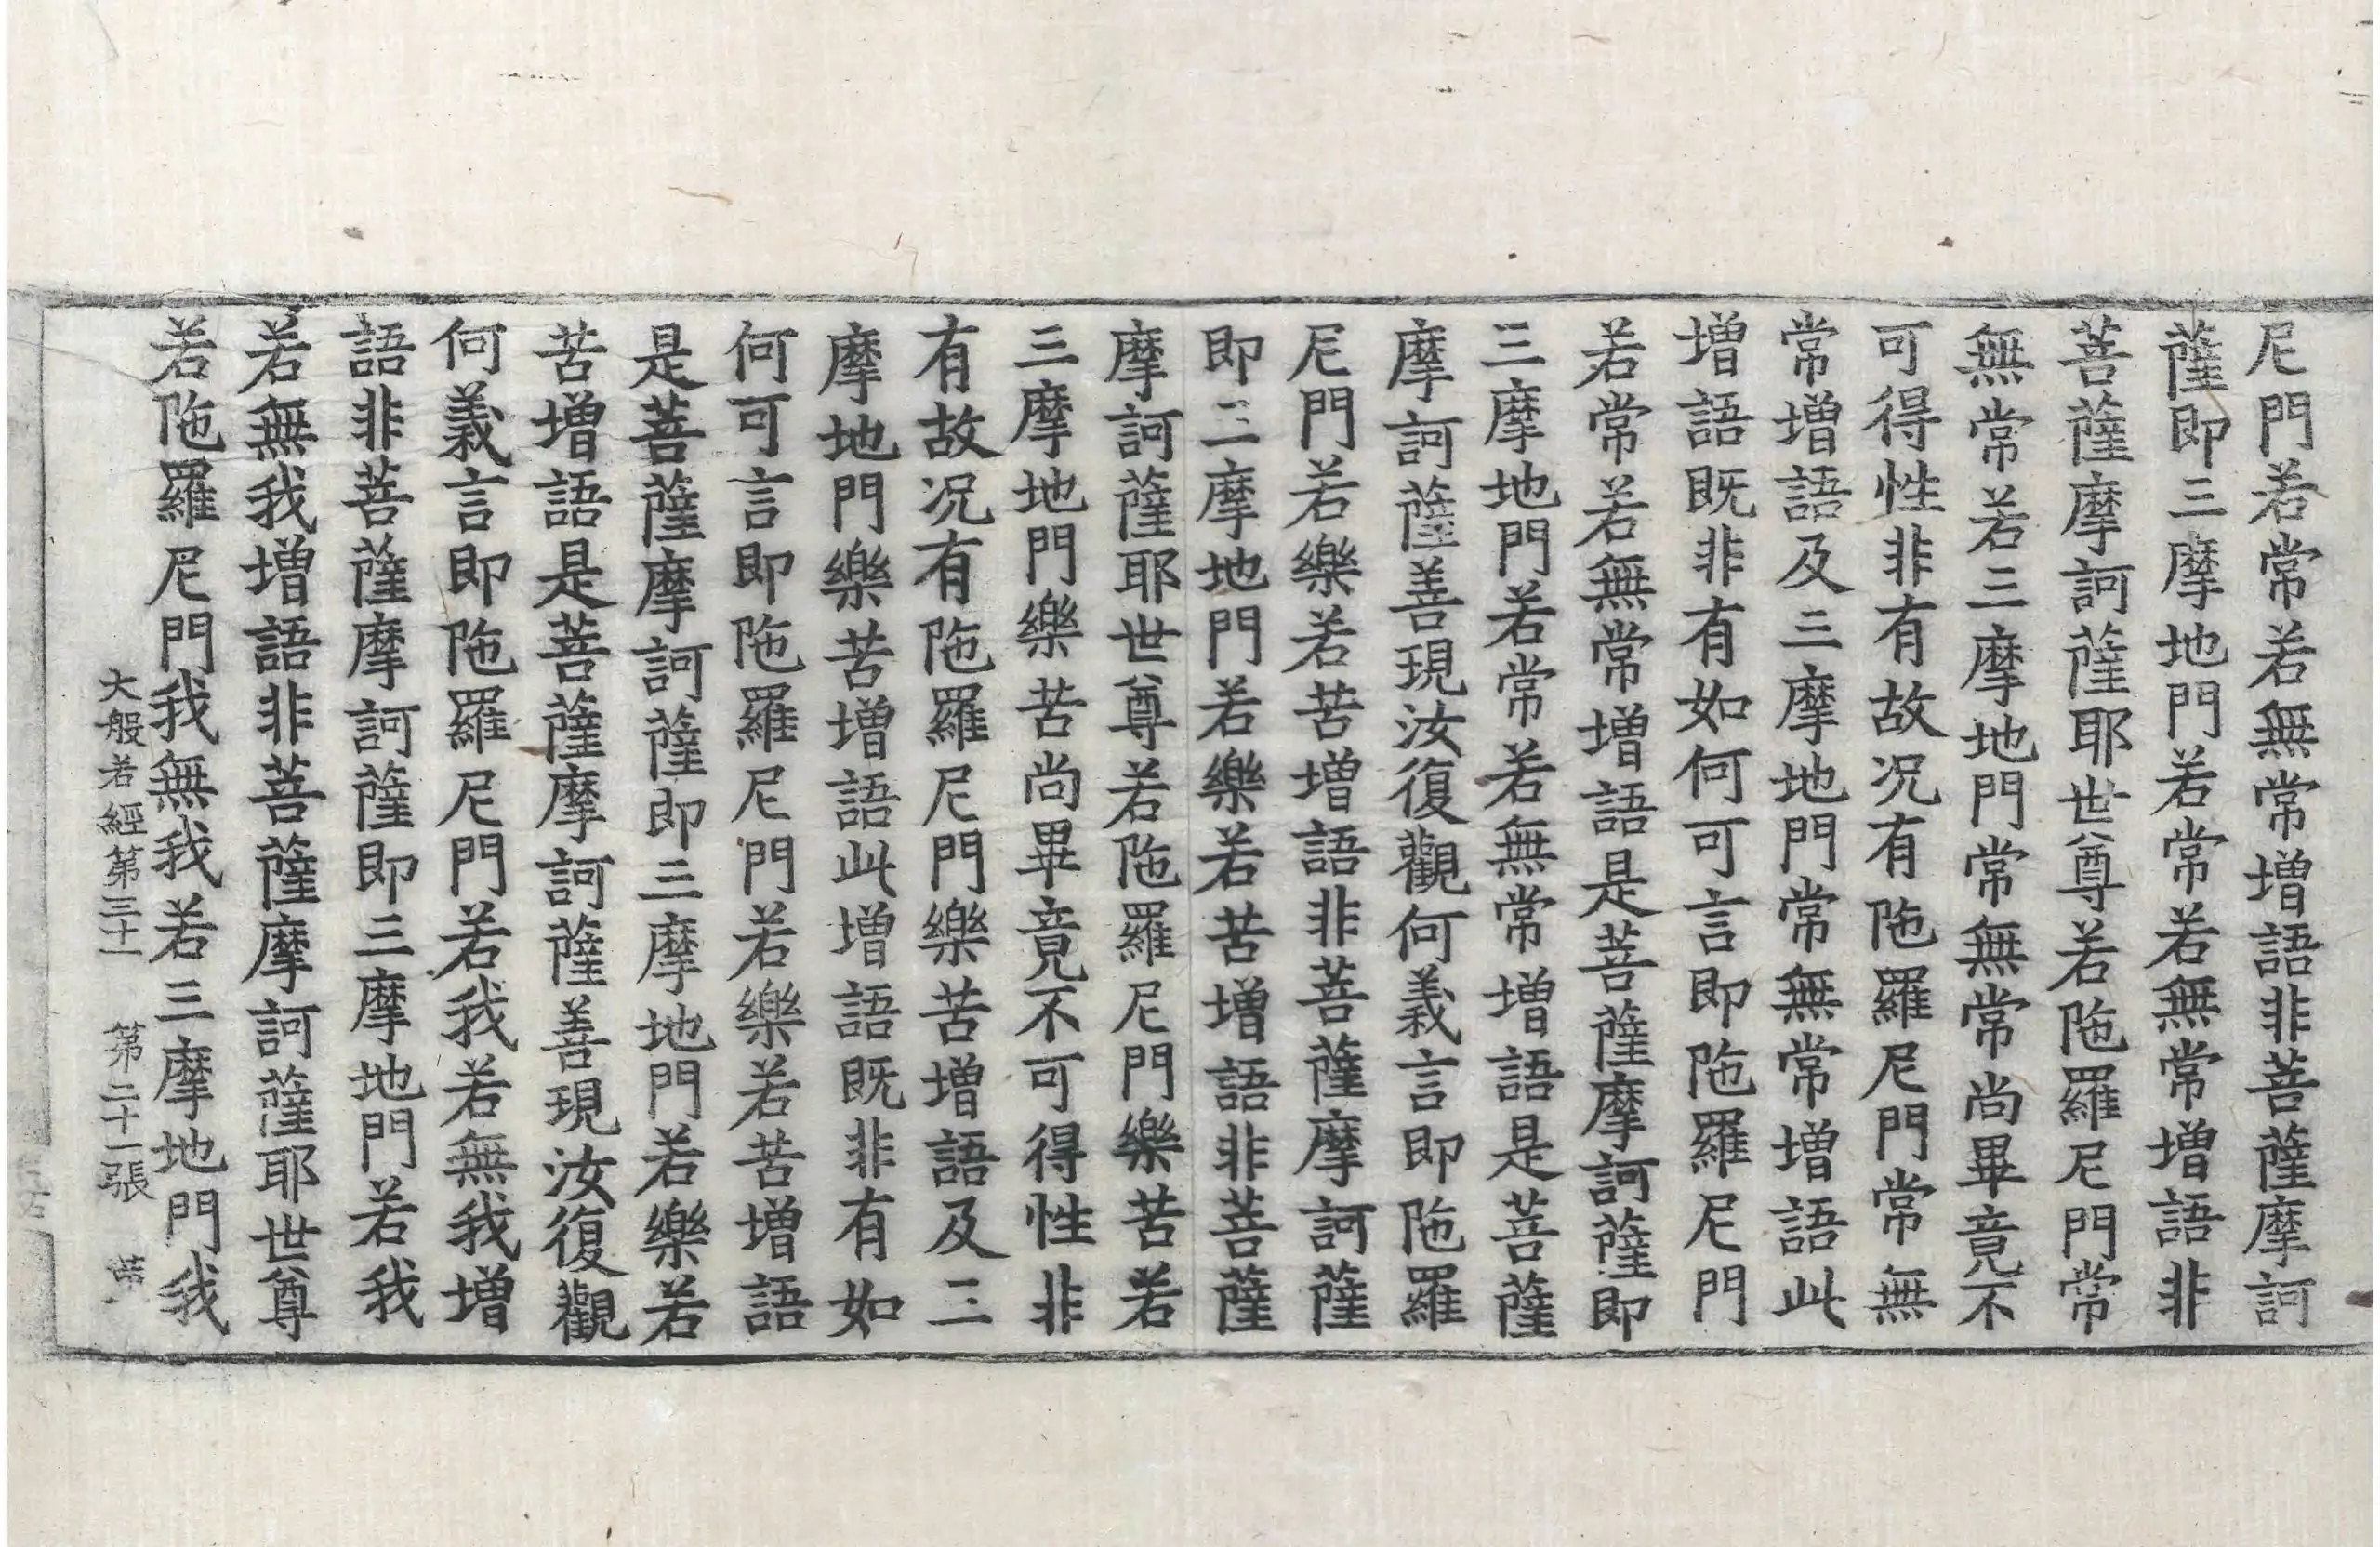 尼門若常若無常增語非菩薩摩訶
薩即三摩地門若常若無常增語非
菩薩摩訶薩耶世尊若陁羅尼門常
無常若三摩地門常無常尚畢竟不
可得性非有故況有陁羅尼門常無
常增語及三摩地門常無常增語此
增語既非有如何可言即陁羅尼門
若常若無常增語是菩薩摩訶薩即
三摩地門若常若無常增語是菩薩
摩訶薩善現汝復觀何義言即陁羅
尼門若樂若苦增語非菩薩摩訶薩
即三摩地門若樂若苦增語非菩薩
摩訶薩耶世尊若陁羅尼門樂苦若
三摩地門樂苦尚畢竟不可得性非
有故況有陁羅尼門樂苦增語及三
摩地門樂苦增語此增語既非有如
何可言即陁羅尼門若樂若苦增語
是菩薩摩訶薩即三摩地門若樂若
苦增語是菩薩摩訶薩善現汝復觀
何義言即陁羅尼門若我若無我增
語非菩薩摩訶薩即三摩地門若我
若無我增語非菩薩摩訶薩耶世尊
若陁羅尼門我無我若三摩地門我
大般若經第三十一 第二十一張